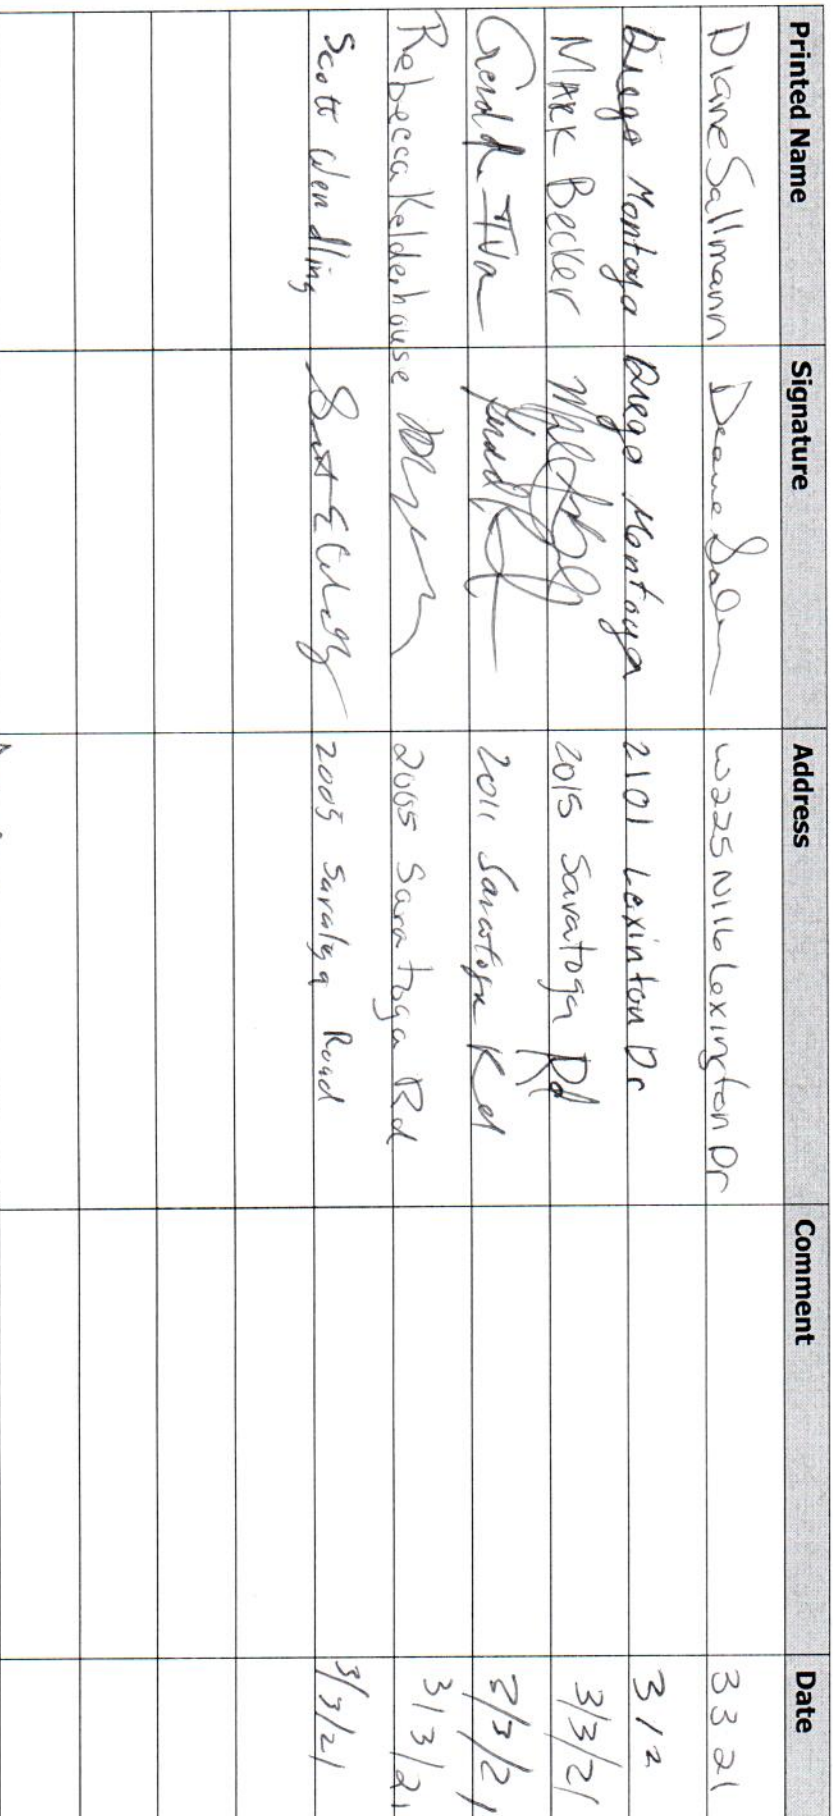 Printed Name Signature Address Comment Date
Diane Sallmann Diane Sallm W225N116 Lexington Dr 3 3 21
Diego Montoya Diego Montoya 2101 Lexinton Dr 3/2
MARK Becker 2015 Saratoga Rd 3/3/21
Gerald R. 2011 Saratoga Rd 3/3/21
Rebecca Keldenhouse 2005 Saratoga Rd 3/3/21
Scott Wendling 2005 Saratoga Road 3/3/21